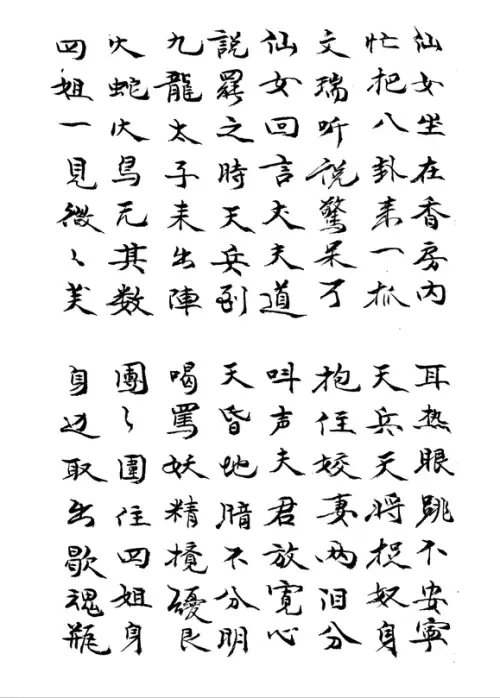 仙女坐在香房内 耳热眼跳不安寧
忙把八卦来一抓 天兵天将捉奴身
文瑞听說驚呆了 抱住姣妻两泪分
仙女回言丈夫道 叫声夫君放寬心
說罷之時天兵到 天昏地暗不分明
九龍太子来出陣 喝罵妖精攪擾良
火蛇火鳥无其数 團々圍住四姐身
四姐一見微々笑 身边取出歇魂瓶